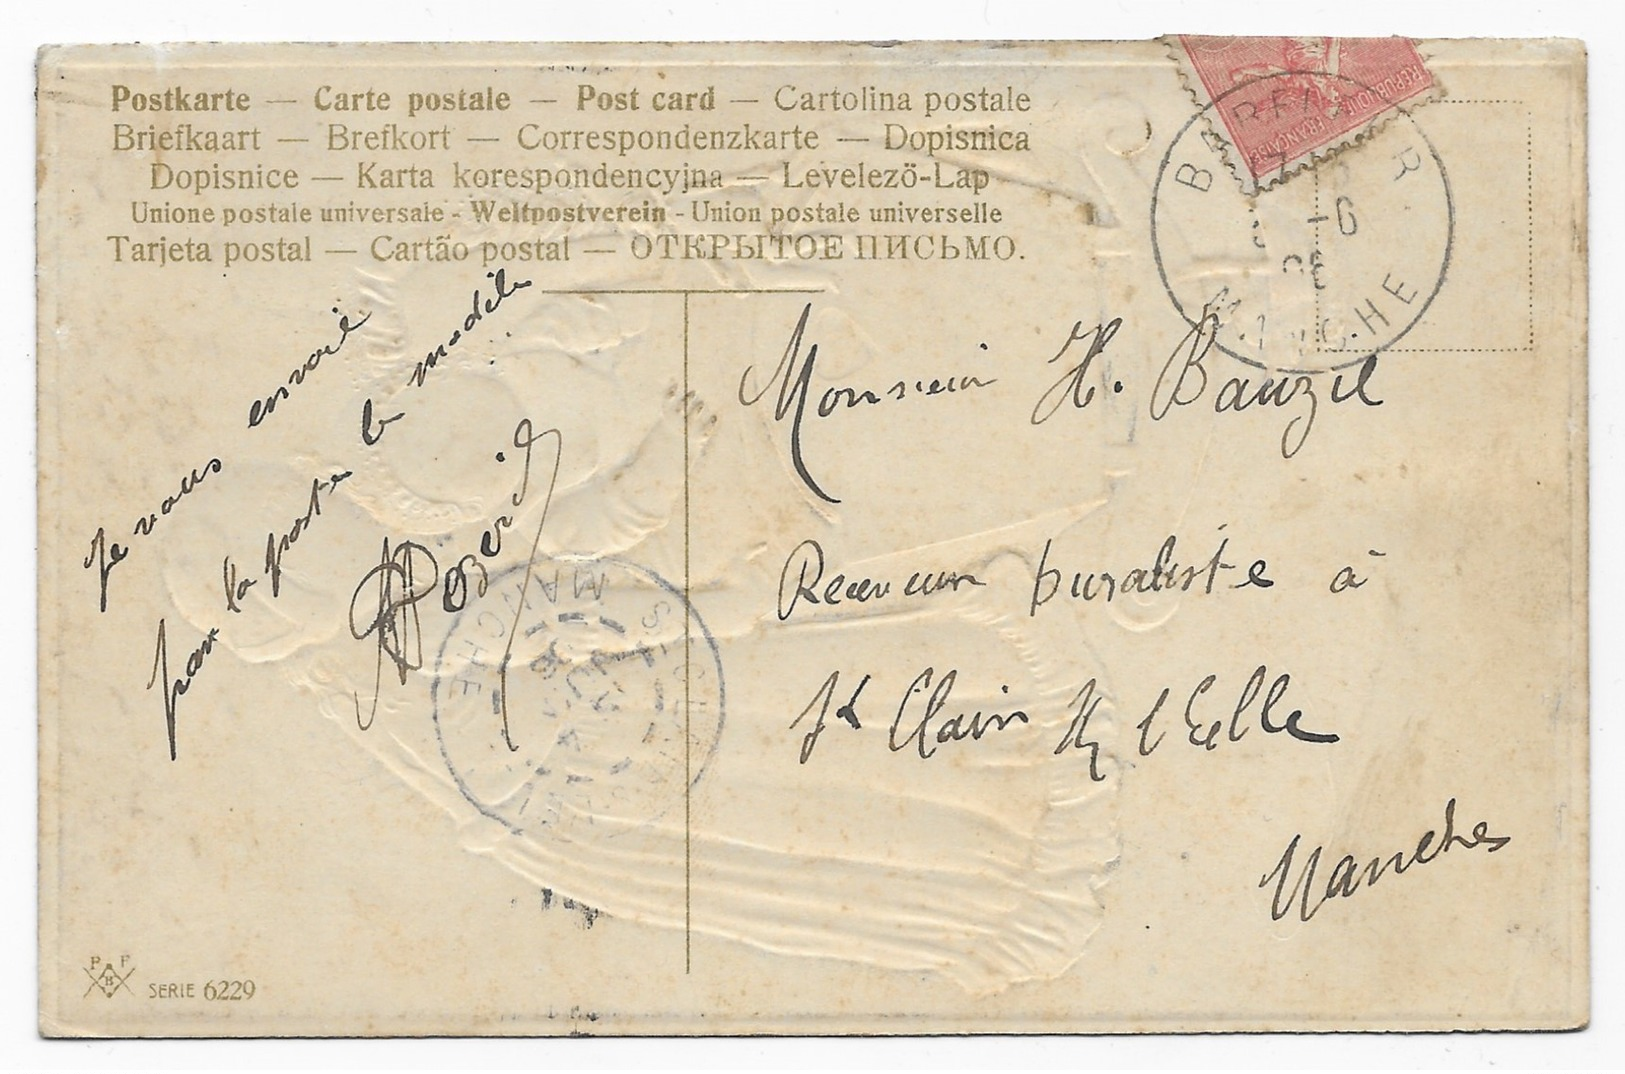 Postkarte — Carte postale — Post card — Cartolina postale
Briefkaart — Brefkort — Correspondenzkarte — Dopisnica
Dopisnice — Karta korespondencyjna — Levelezö-Lap
Unione postale universale - Weltpostverein - Union postale universelle
Tarjeta postal — Cartão postal — ОТКРЫТОЕ ПИСЬМО.
REPUBLIQUE FRANÇAISE
BARFLEUR
-6
MANCHE
Je vous envoie
par la poste le modèle
Monsieur H. Bauzil
Receveur buraliste à
St Clair l'Eelle
Manche
MANCHE
P F
B
SERIE 6229